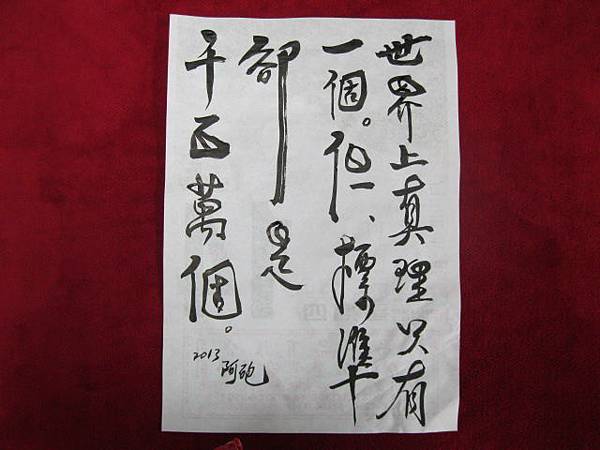 世界上真理只有
一個。但、標準
卻是
千百萬個。
2013 阿砲